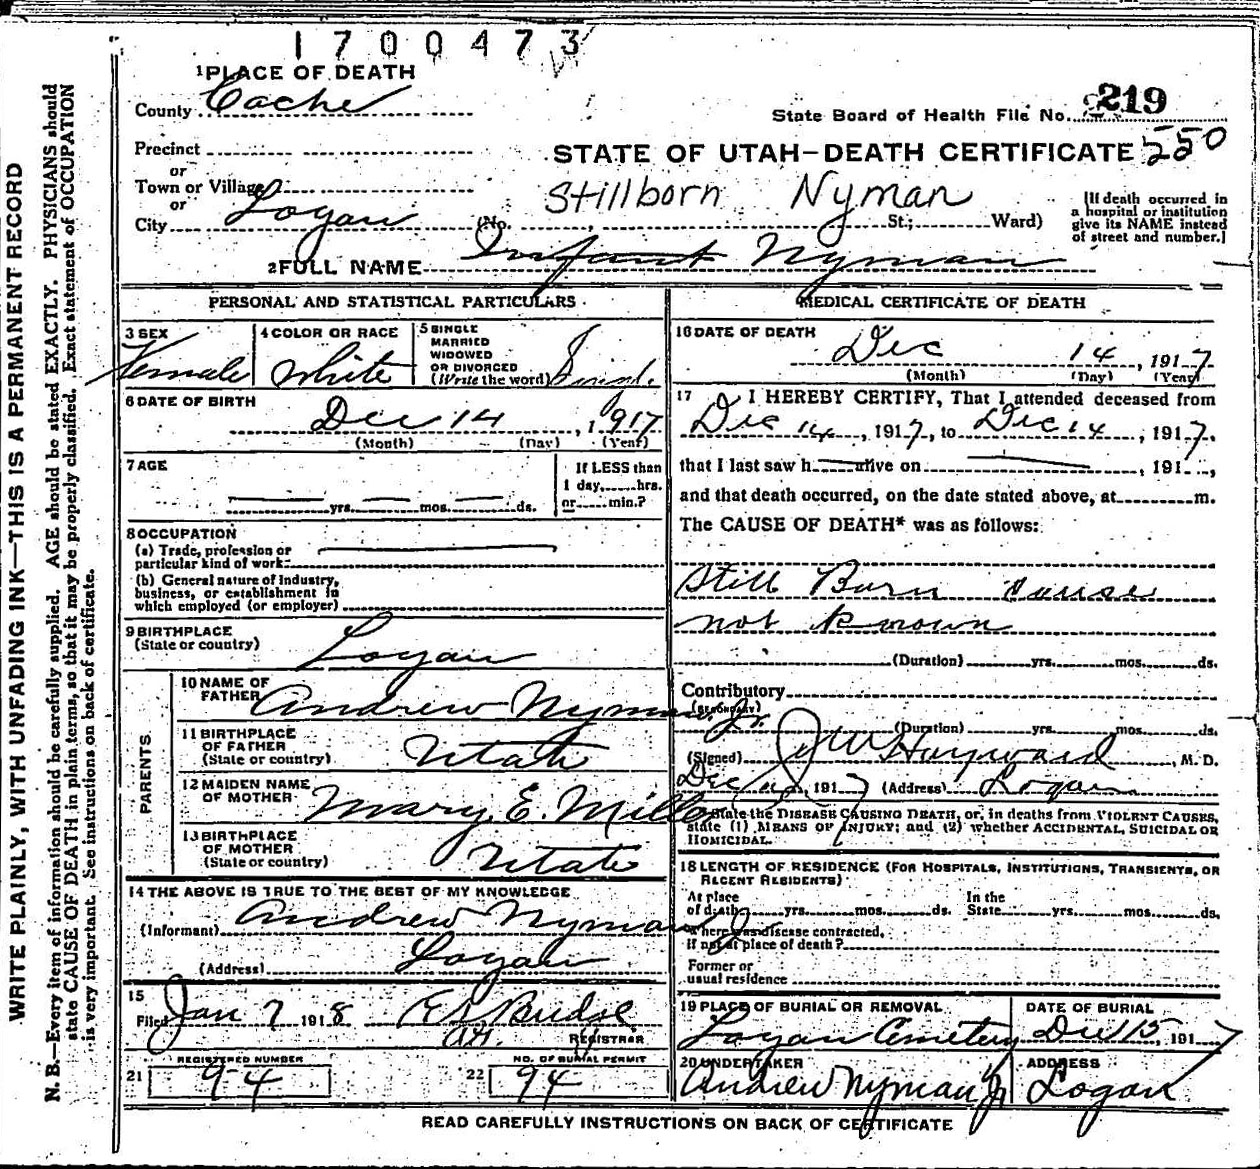 1700473
1 PLACE OF DEATH
County Cache
State Board of Health File No. 219
Precinct
or
Town or Village
or
City Logan
STATE OF UTAH—DEATH CERTIFICATE 550
Stillborn Nyman
(No. St.; Ward)
[If death occurred in
a hospital or institution
give its NAME instead
of street and number.]
2 FULL NAME Infant Nyman
PERSONAL AND STATISTICAL PARTICULARS
3 SEX
Female
4 COLOR OR RACE
White
5 SINGLE
MARRIED
WIDOWED
OR DIVORCED
(Write the word) Singl.
6 DATE OF BIRTH
Dec 14, 1917
(Month) (Day) (Year)
7 AGE
yrs. mos. ds.
If LESS than
1 day, hrs.
or min.?
8 OCCUPATION
(a) Trade, profession or
particular kind of work
(b) General nature of industry,
business, or establishment in
which employed (or employer)
9 BIRTHPLACE
(State or country) Logan
PARENTS
10 NAME OF
FATHER Andrew Nyman Jr.
11 BIRTHPLACE
OF FATHER
(State or country) Utah
12 MAIDEN NAME
OF MOTHER Mary E. Miller
13 BIRTHPLACE
OF MOTHER
(State or country) Utah
14 THE ABOVE IS TRUE TO THE BEST OF MY KNOWLEDGE
(Informant) Andrew Nyman Jr
(Address) Logan
15
Filed Jan 7 1918
REGISTRAR
REGISTERED NUMBER
21 94
NO. OF BURIAL PERMIT
22 94
MEDICAL CERTIFICATE OF DEATH
16 DATE OF DEATH
Dec 14, 1917
(Month) (Day) (Year)
17 I HEREBY CERTIFY, That I attended deceased from
Dec 14, 1917, to Dec 14, 1917.
that I last saw h alive on , 191 ,
and that death occurred, on the date stated above, at m.
The CAUSE OF DEATH* was as follows:
Still Born cause
not known
(Duration) yrs. mos. ds.
Contributory
(SECONDARY)
(Duration) yrs. mos. ds.
(Signed) J W Hayward, M. D.
Dec , 1917 (Address) Logan
*State the DISEASE CAUSING DEATH, or, in deaths from VIOLENT CAUSES,
state (1) MEANS OF INJURY; and (2) whether ACCIDENTAL, SUICIDAL OR
HOMICIDAL.
18 LENGTH OF RESIDENCE (FOR HOSPITALS, INSTITUTIONS, TRANSIENTS, OR
RECENT RESIDENTS)
At place
of death yrs. mos. ds.
In the
State yrs. mos. ds.
Where was disease contracted,
if not at place of death?
Former or
usual residence
19 PLACE OF BURIAL OR REMOVAL
Logan Cemetery
DATE OF BURIAL
Dec 15, 1917
20 UNDERTAKER
Andrew Nyman Jr
ADDRESS
Logan
READ CAREFULLY INSTRUCTIONS ON BACK OF CERTIFICATE
WRITE PLAINLY, WITH UNFADING INK—THIS IS A PERMANENT RECORD
N. B.—Every item of information should be carefully supplied. AGE should be stated EXACTLY. PHYSICIANS should
state CAUSE OF DEATH in plain terms, so that it may be properly classified. Exact statement of OCCUPATION
is very important. See instructions on back of certificate.